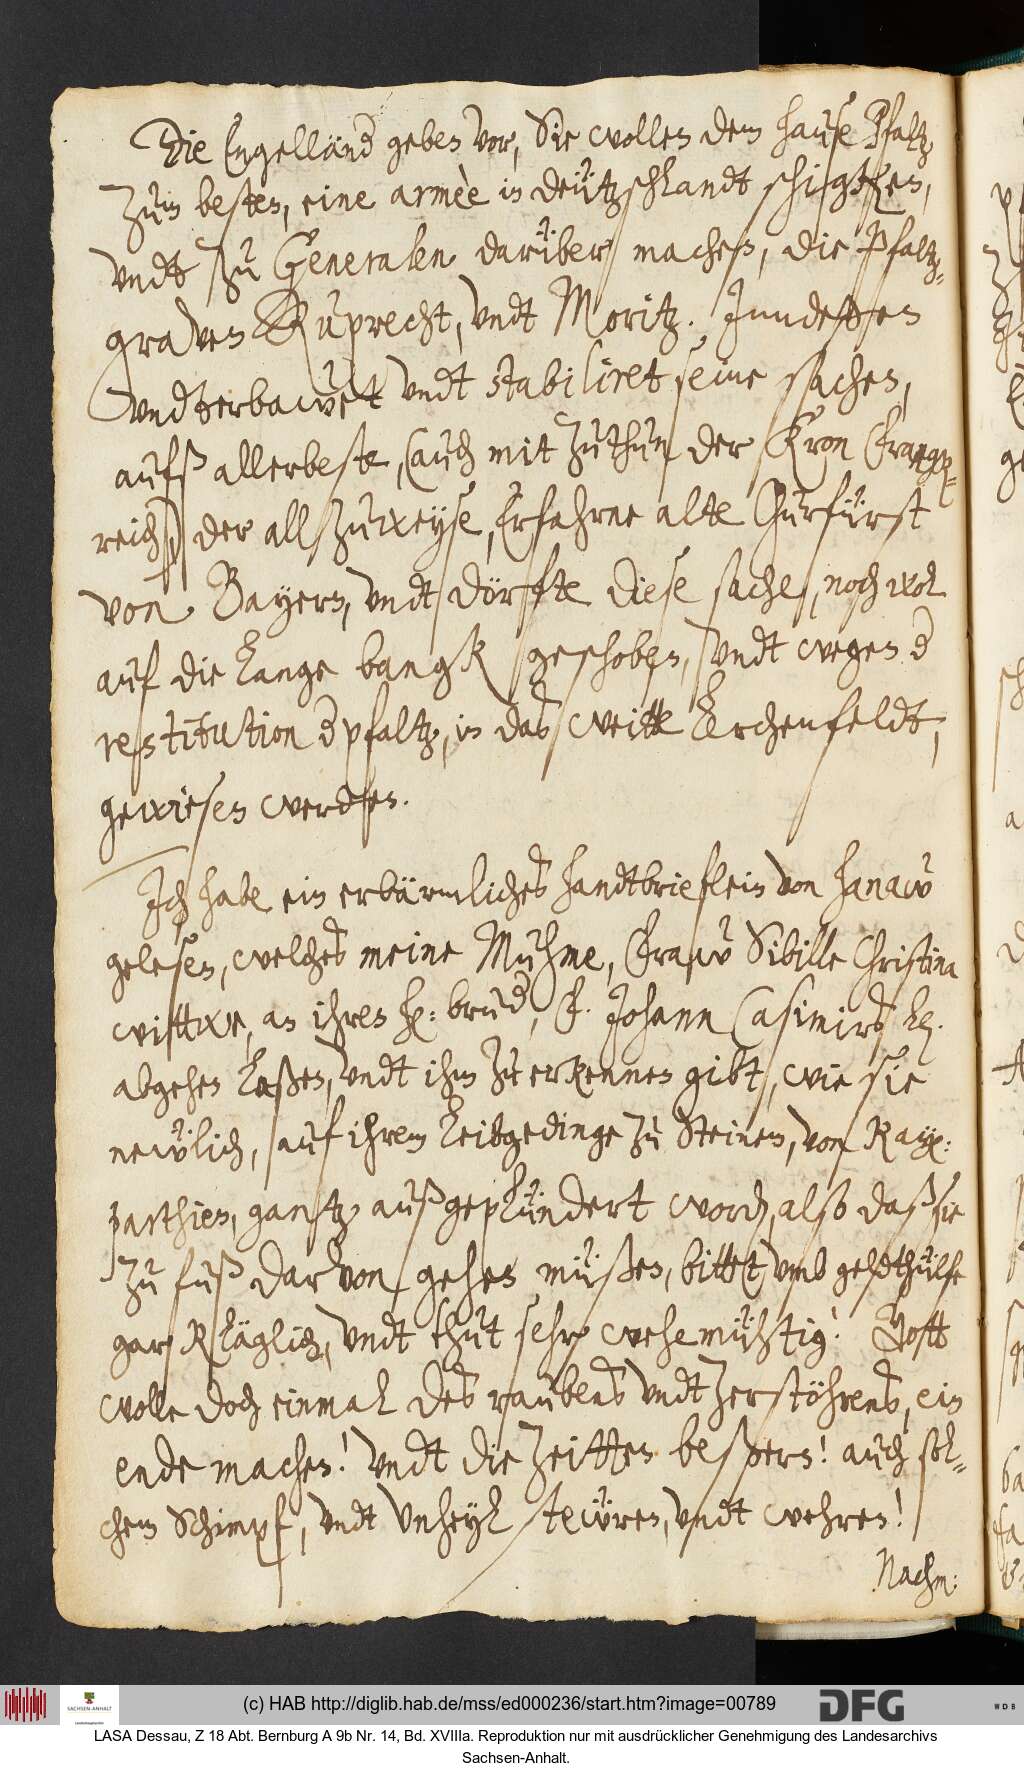 Die Engelländ geben vor, Sie wollen dem hause Pfaltz
zum besten, eine armèe in deützschlandt schigken,
vndt zu Generalen darüber machen, die Pfaltz-
graven Ruprecht, vndt Moritz. Inndeßen
vndterbawet vndt stabiliret seine sachen,
aufs allerbeste, (auch mit zuthun der Kron Frangk-
reich) der allzuweyse, Erfahrne alte Churfürst
von Bayern, vndt dörffte diese sache, noch wol
auf die Lange bangk geschoben, vndt wegen d
restitution d pfaltz, in das weitte Lerchenfeldt,
gewiesen werden.
Ich habe ein erbärmliches handtbrieflein von hanaw
gelesen, welches meine Muhme, Fraw Sibille Christina
wittwe, an ihren h: brud, F. Johann Casimirs L.
abgehen Laßen, vndt ihm zu erkennen gibt, wie sie
newlich, auf ihrem Leibgedinge zu Steinen, von Kay:
parthien, gantz außgeplündert word, also daß sie
zu fuß darvon gehen müßen, bittet vmb geldthülfe
gar kläglich, vndt thut sehr wehemühtig! Gott
wolle doch einmal des raubens vndt zerstöhrens, ein
ende machen! vndt die Zeitten beßern! auch sol-
chem Schimpf, vndt Vnheyl stewren, vndt wehren!
Nachm:
(c) HAB http://diglib.hab.de/mss/ed000236/start.htm?image=00789
SACHSEN-ANHALT
DFG
WDB
LASA Dessau, Z 18 Abt. Bernburg A 9b Nr. 14, Bd. XVIIIa. Reproduktion nur mit ausdrücklicher Genehmigung des Landesarchivs
Sachsen-Anhalt.